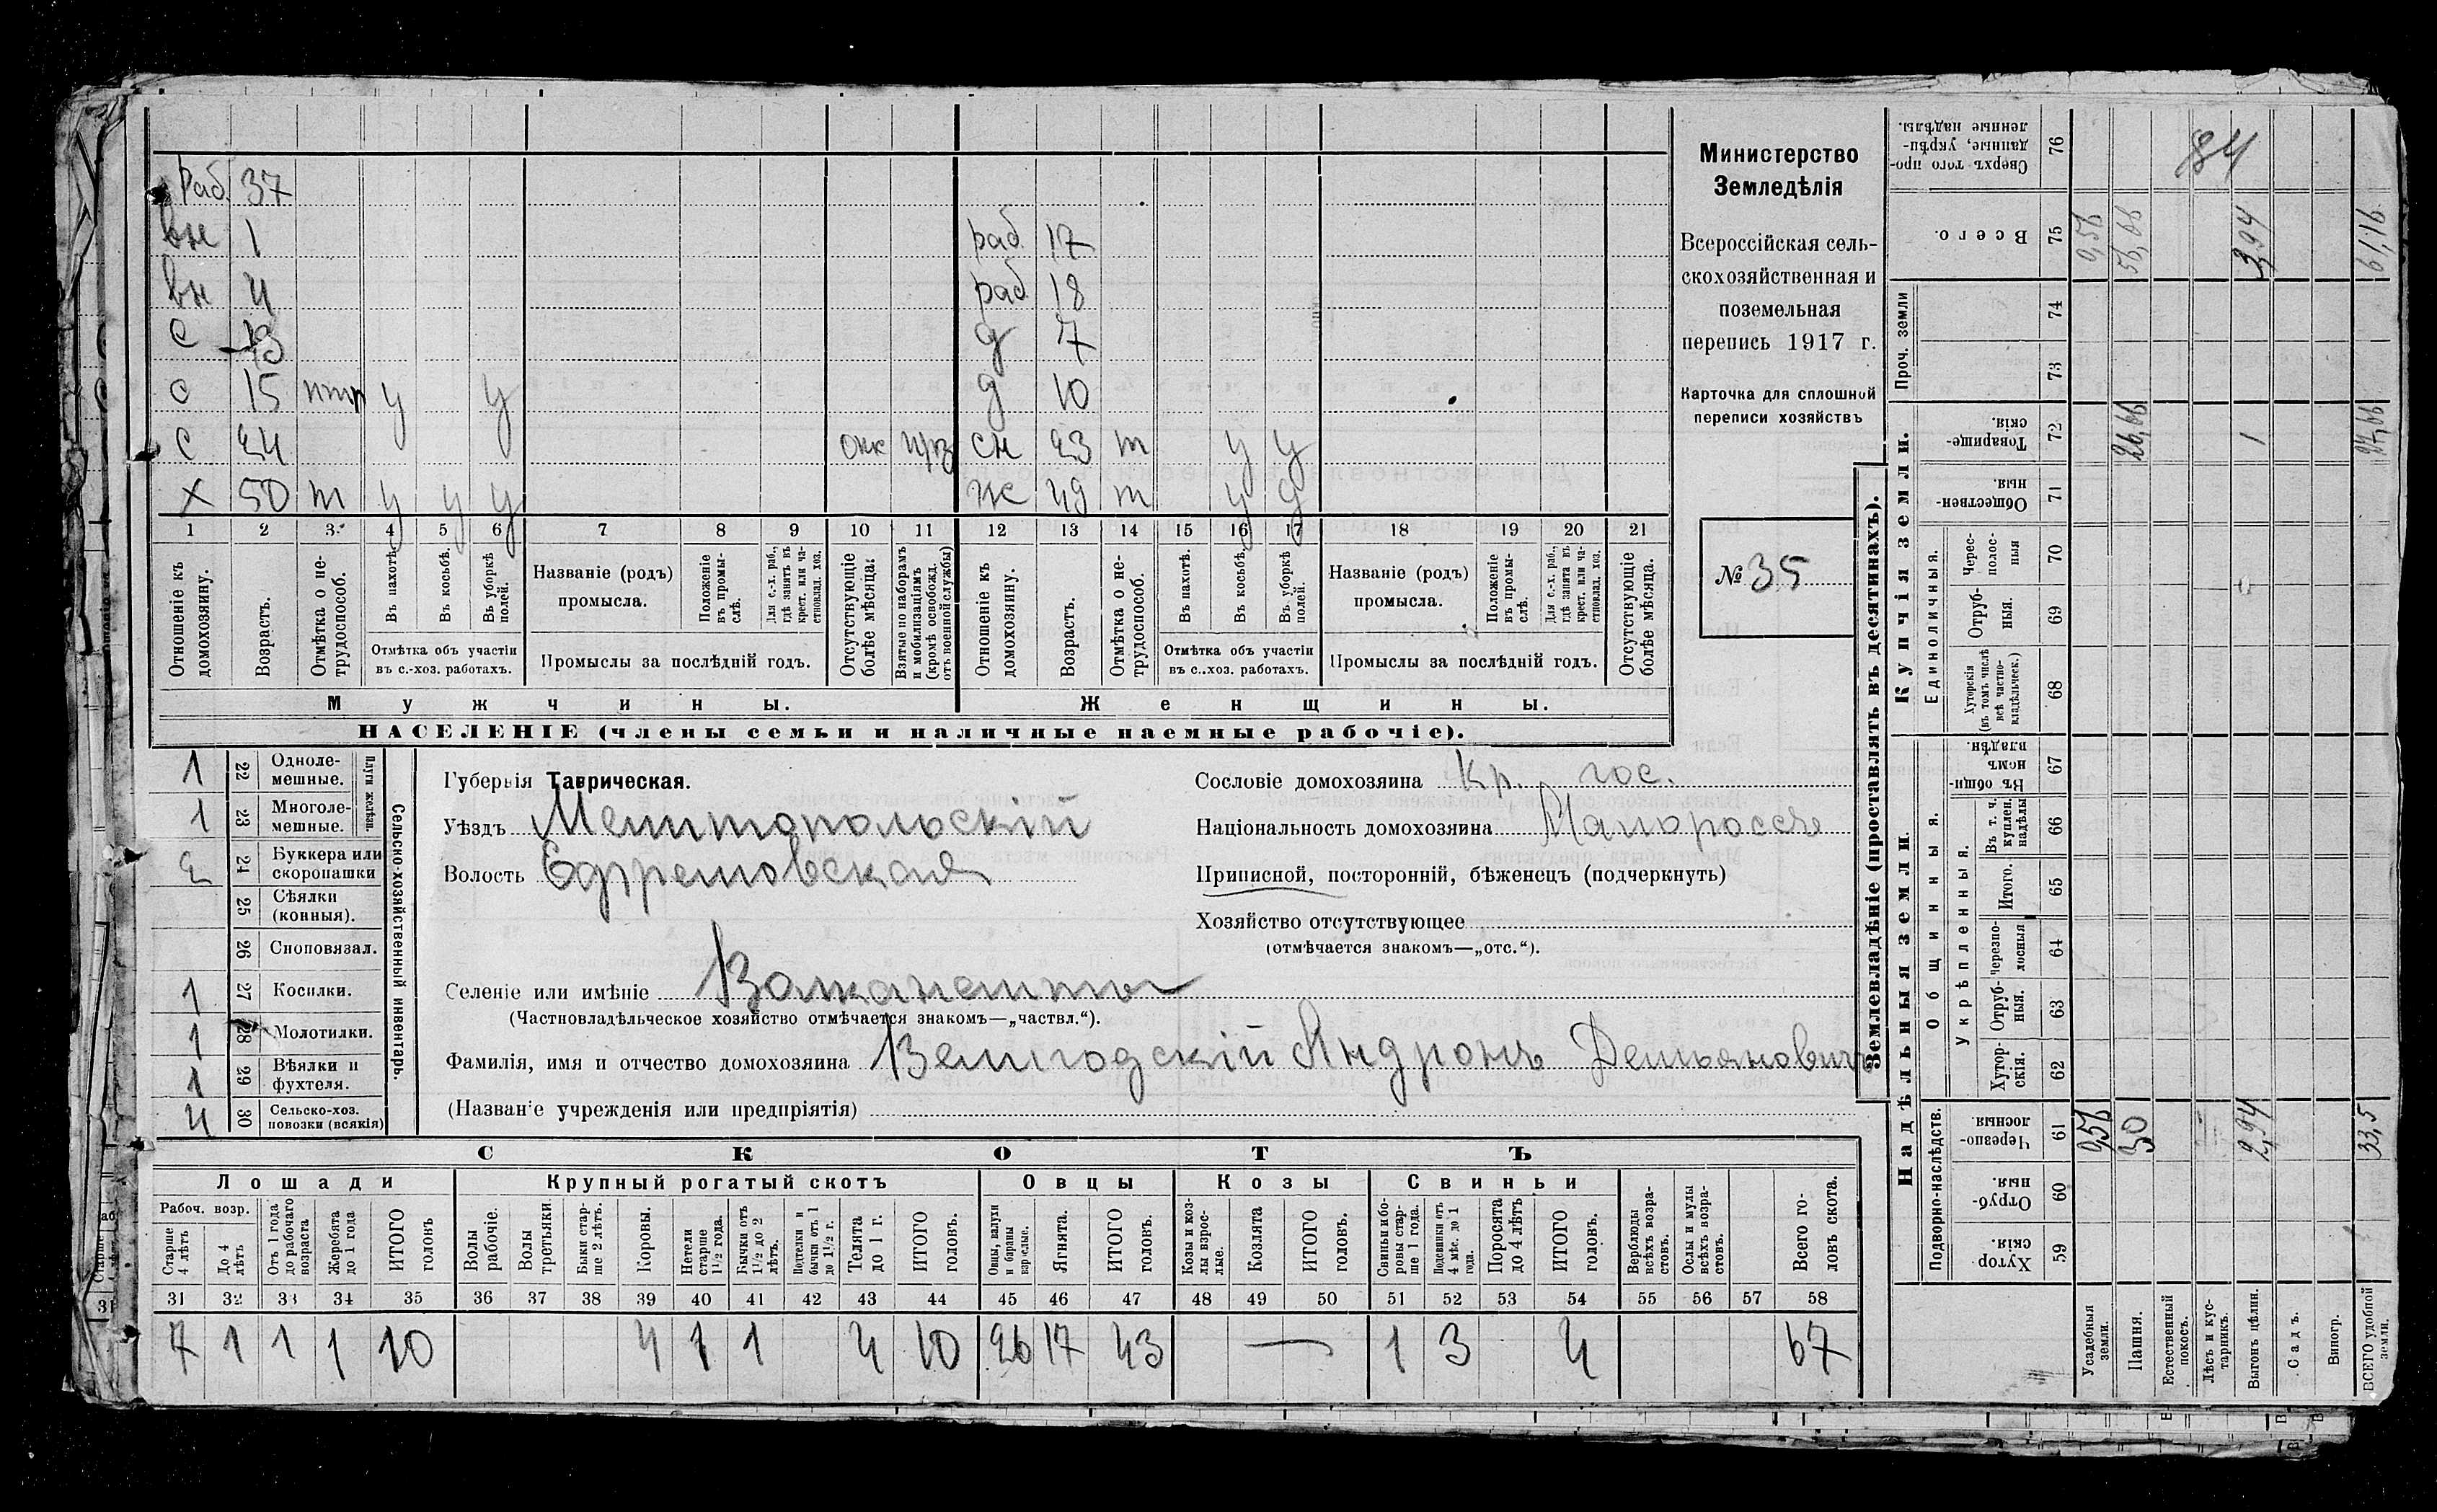 Раб. 37
вн 1 раб. 17
вн 4 раб 18
с 13 д 7
с 15 ппр у у д 10
с 24 сн 23 т у у
х 50 т у у у ж 49 т у у
1 2 3 4 5 6 7 8 9 10 11 12 13 14 15 16 17 18 19 20 21
Отношеніе къ домохозяину.
Возрастъ.
Отмѣтка о не-трудоспособ.
Въ пахотѣ.
Въ косьбѣ.
Въ уборкѣ полей.
Отмѣтка объ участіи
въ с.-хоз. работахъ.
Названіе (родъ)
промысла.
Положеніе въ промы-слѣ.
Для с.-х. раб., гдѣ занятъ въ крест. или ча-стновлад. хоз.
Промыслы за послѣдній годъ.
Отсутствующіе болѣе мѣсяца:
Взятые по наборамъ и мобилизаціямъ (кромѣ освобожд. отъ военной службы)
Отношеніе къ домохозяину.
Возрастъ.
Отмѣтка о не-трудоспособ.
Въ пахотѣ.
Въ косьбѣ.
Въ уборкѣ полей.
Отмѣтка объ участіи
въ с..хоз. работахъ.
Названіе (родъ)
промысла.
Положеніе въ промы-слѣ.
Для с.-х. раб., гдѣ занята въ крест. или ча-стновлад. хоз.
Промыслы за послѣдній годъ.
Отсутствующіе болѣе мѣсяца.
Мужчины. Женщины.
НАСЕЛЕНІЕ (члены семьи и наличные наемные рабочіе).
Министерство
Земледѣлія
Всероссійская сель-
скохозяйственная и
поземельная
перепись 1917 г.
Карточка для сплошной
переписи хозяйствъ
№ 35
1 22 Одноле-мешные.
1 23 Многоле-мешные.
Плуги желѣзн.
2 24 Буккера или скоропашки
25 Сѣялки (конныя).
26 Сноповязал.
1 27 Косилки.
1 28 Молотилки.
1 29 Вѣялки и фухтеля.
4 30 Сельско-хоз. повозки (всякія)
Сельско-хозяйственный инвентарь.
Губернія Таврическая.
Уѣздъ Мелитопольскій
Волость Ефремовская
Селеніе или имѣніе
(Частновладѣльческое хозяйство отмѣчается знакомъ—„частвл.“).
Фамилія, имя и отчество домохозяина Велигодскій Андронъ Демьяновичъ
(Названіе учрежденія или предпріятія)
Сословіе домохозяина Кр. гос.
Національность домохозяина Малороссъ
Приписной, посторонній, бѣженецъ (подчеркнуть)
Хозяйство отсутствующее
(отмѣчается знакомъ—„отс.“).
СКОТЪ
Лошади Крупный рогатый скотъ Овцы Козы Свиньи
Рабоч. возр.
Старше 4 лѣтъ
До 4 лѣтъ
Отъ 1 года до рабочаго возраста
Жеребята до 1 года
ИТОГО головъ
Волы рабочіе.
Волы третьяки
Быки стар-ше 2 лѣтъ.
Коровы.
Нетели старше 1½ года.
Бычки отъ 1½ до 2 лѣтъ.
Подтелки и бычки отъ 1 до 1½ г.
Телята до 1 г.
ИТОГО головъ.
Овцы, валухи и бараны взрослые.
Ягнята.
ИТОГО головъ.
Козы и коз-лы взрос-лые.
Козлята
ИТОГО головъ.
Свиньи и бо-ровы стар-ше 1 года.
Подсвинки отъ 4 мѣс. до 1 года.
Поросята до 4 лѣтъ
ИТОГО головъ.
Верблюды всѣхъ возра-стовъ.
Ослы и мулы всѣхъ возра-стовъ.
Всего го-ловъ скота.
31 32 33 34 35 36 37 38 39 40 41 42 43 44 45 46 47 48 49 50 51 52 53 54 55 56 57 58
7 1 1 1 10 4 1 1 4 10 26 17 43 — 1 3 4 67
Землевладѣніе (проставлять въ десятинахъ).
Надѣльныя земли. Купчія земли.
Подворно-наслѣдств. Общинныя. Укрѣпленныя. Единоличныя. Проч. земли
Сверхъ того про-данные, укрѣп-ленные надѣлы. 76 84
Всего. 75 0,56 56,66 3,94 61,16
74
73
Товарище-скія. 72 26,66 1 27,66
Обществен-ныя. 71
Черес-полос-ныя 70
Отруб-ныя. 69
Хуторскія (въ томъ числѣ всѣ частно-владѣльческ.) 68
Въ общи-номъ владѣн. 67
Въ т. ч. куплен. надѣлы 66
Итого. 65
Черезпо-лосныя 64
Отруб-ныя. 63
Хутор-скія. 62
Черезпо-лосныя. 61 0,56 30 2,94 33,5
Отруб-ныя. 60
Хутор-скія. 59
Усадебныя земли.
Пашня.
Естественный покосъ.
Лѣсъ и кус-тарникъ.
Выгонъ цѣлин.
Садъ.
Виногр.
ВСЕГО удобной земли.